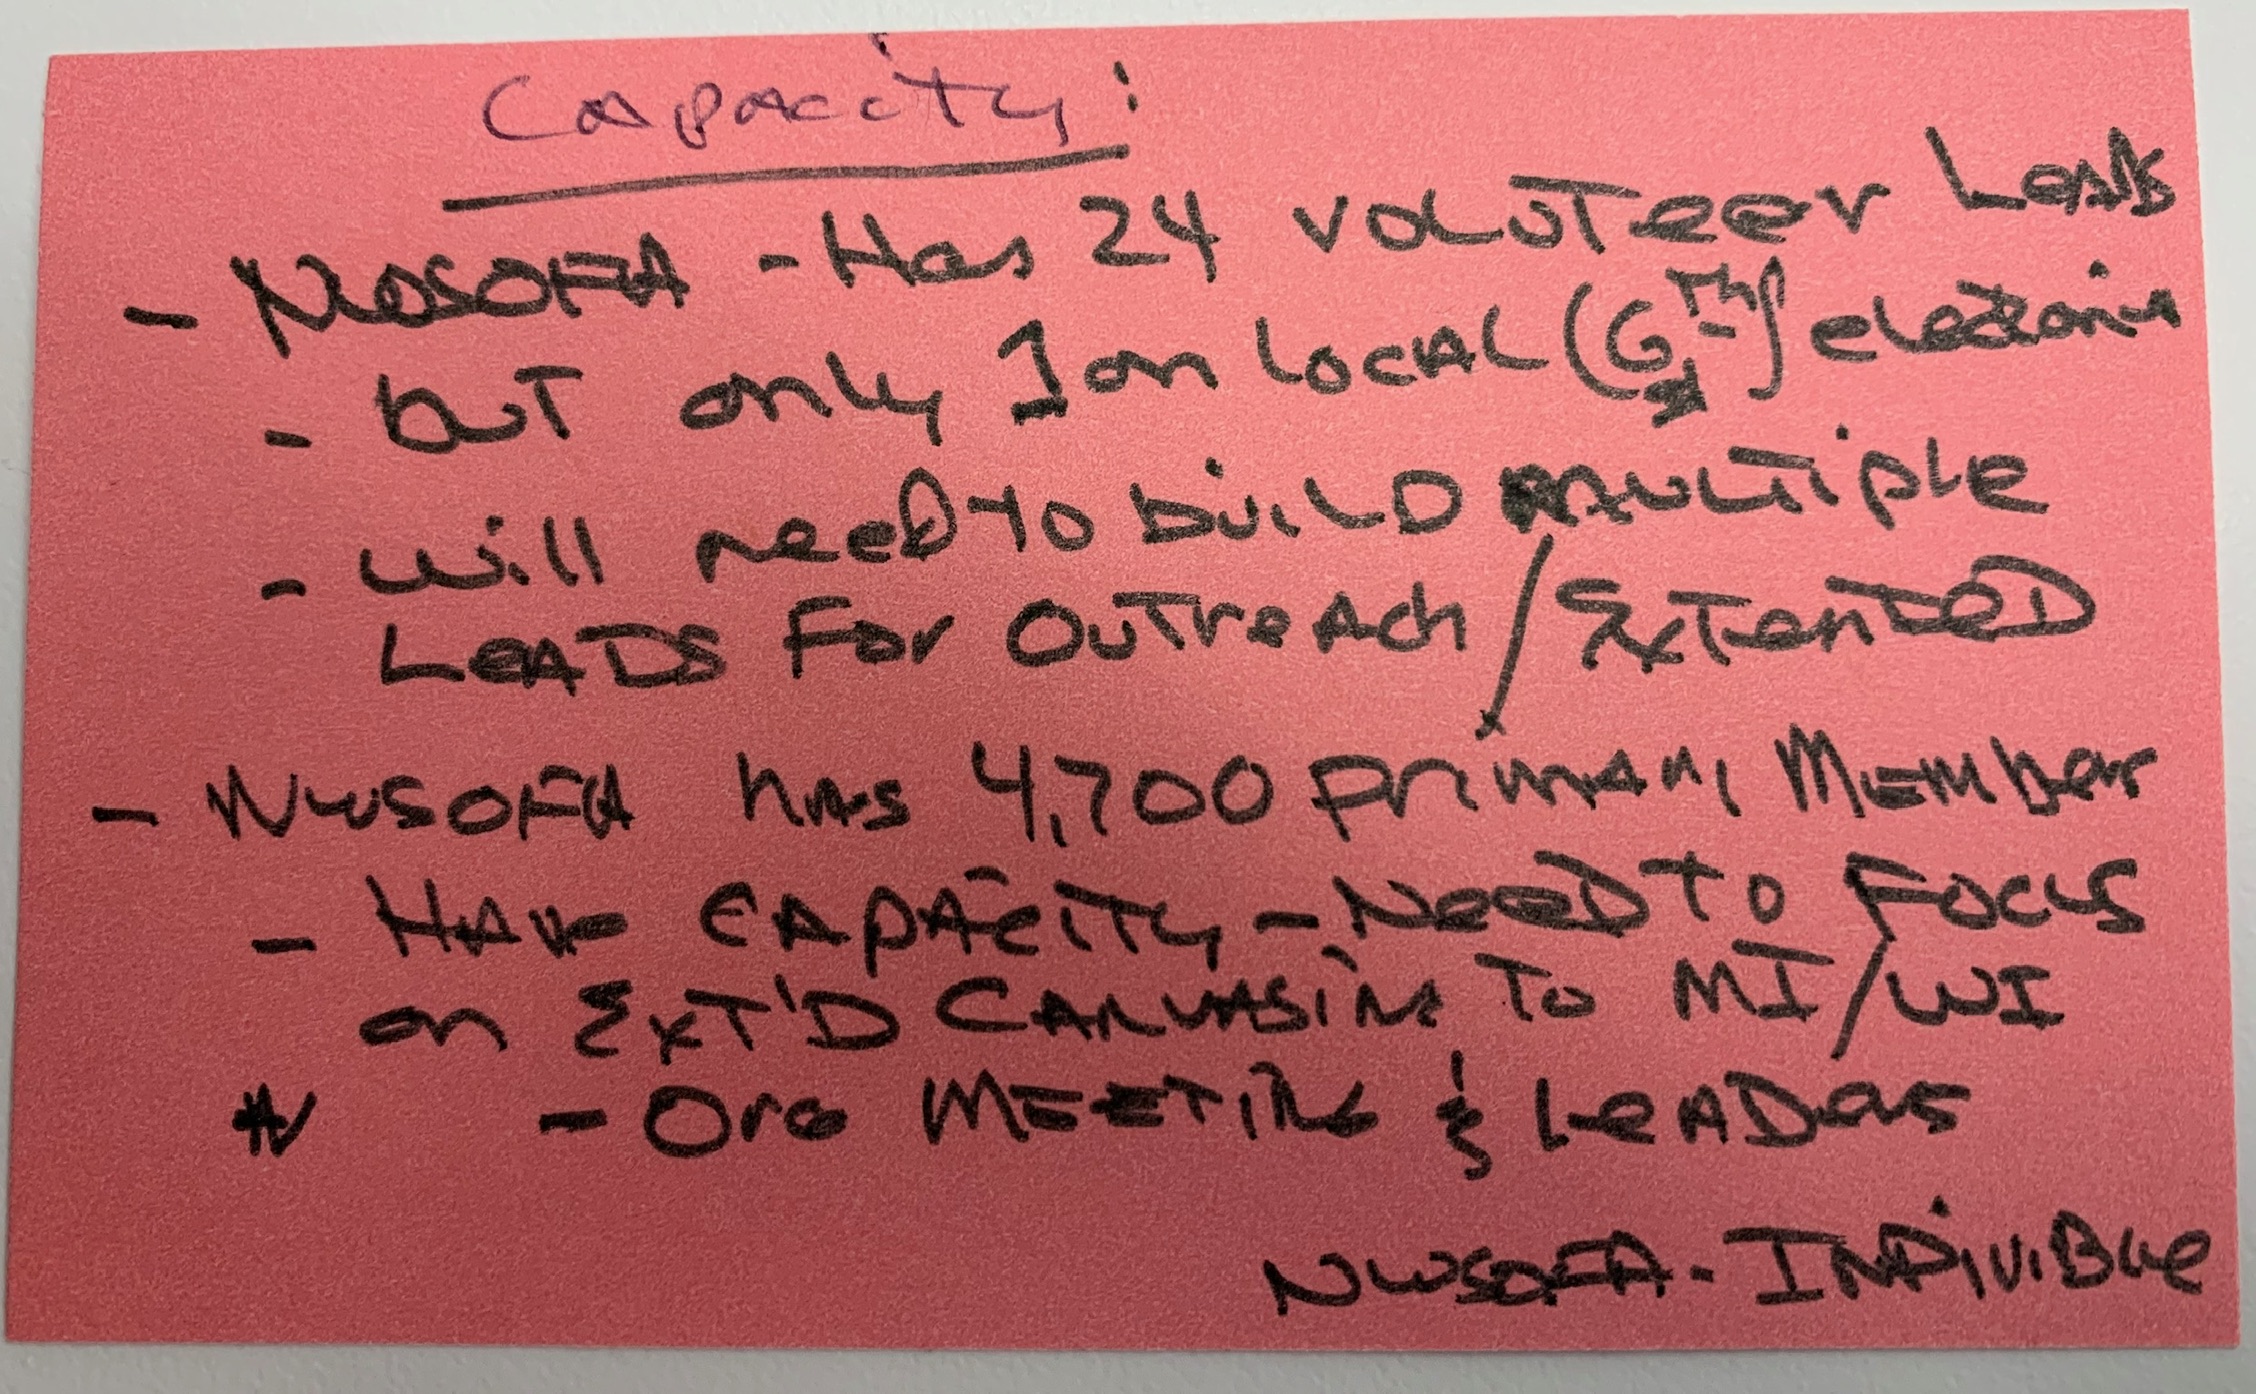 Capacity:
- NWSOFA - Has 24 voluTeer Leads
- buT only 1 on Local (6TH) elections
- will need to build multiple
LEADS For OuTreAch / ExTenDeD
- NWSOFA has 4,700 primary Members
- HAve CApAciTy - NeeD to Focus
on ExT'D CANVASiNG To MI/WI
* - OrG MEETiNG & LeADers
NWSOFA - INDiViBLe